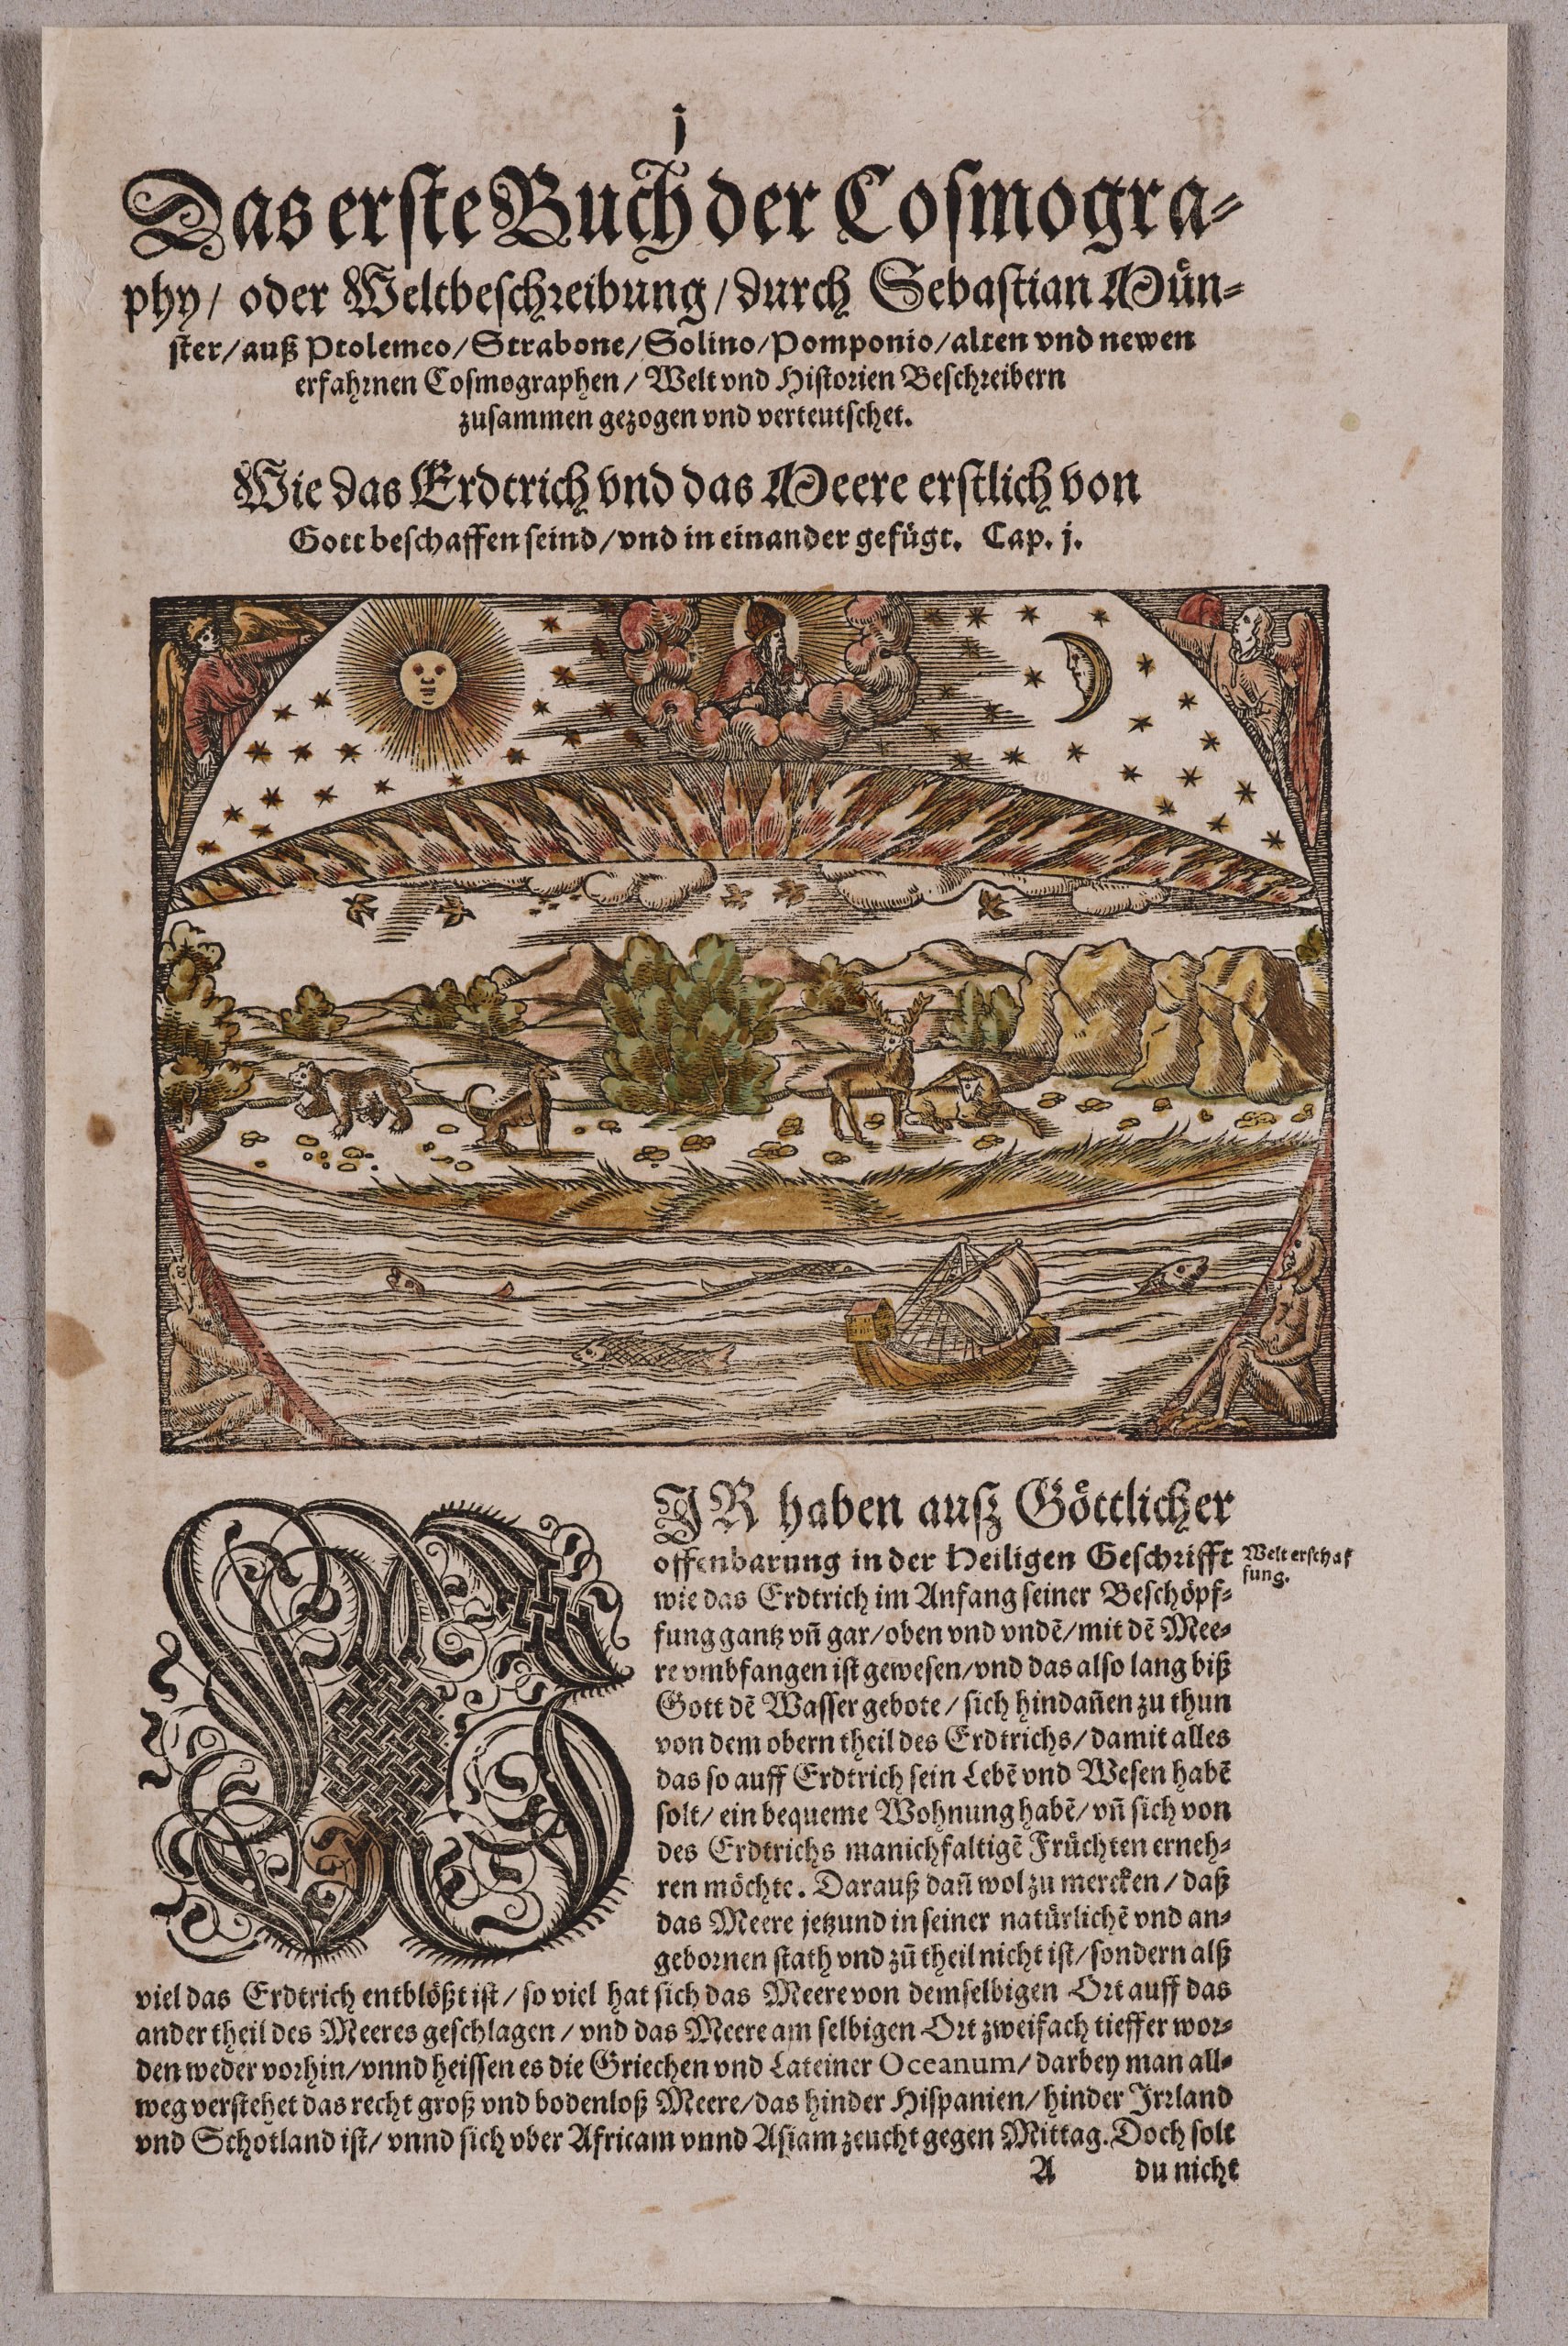 j
Das erste Buch der Cosmogra⸗
phy/ oder Weltbeschreibung/ durch Sebastian Mün⸗
ster/ auß Ptolemeo/ Strabone/ Solino/ Pomponio/ alten vnd newen
erfahrnen Cosmographen/ Welt vnd Historien Beschreibern
zusammen gezogen vnd verteutschet.
Wie das Erdtrich vnd das Meere erstlich von
Gott beschaffen seind/ vnd in einander gefügt. Cap. j.
WJR haben ausz Göttlicher
offenbarung in der Heiligen Geschrifft
Welt erschaf
fung.
wie das Erdtrich im Anfang seiner Beschöpf⸗
fung gantz vñ gar/ oben vnd vndẽ/ mit dẽ Mee⸗
re vmbfangen ist gewesen/ vnd das also lang biß
Gott dẽ Wasser gebote/ sich hindañen zu thun
von dem obern theil des Erdtrichs/ damit alles
das so auff Erdtrich sein Lebẽ vnd Wesen habẽ
solt/ ein bequeme Wohnung habẽ/ vñ sich von
des Erdtrichs manichfaltigẽ Früchten erneh⸗
ren möchte. Darauß dañ wol zu mercken/ daß
das Meere jetzund in seiner natürlichẽ vnd an⸗
gebornen stath vnd zũ theil nicht ist/ sondern alß
viel das Erdtrich entblößt ist/ so viel hat sich das Meere von demselbigen Ort auff das
ander theil des Meeres geschlagen/ vnd das Meere am selbigen Ort zweifach tieffer wor⸗
den weder vorhin/ vnnd heissen es die Griechen vnd Lateiner Oceanum/ darbey man all⸗
weg verstehet das recht groß vnd bodenloß Meere/ das hinder Hispanien/ hinder Jrrland
vnd Schotland ist/ vnnd sich vber Africam vnnd Asiam zeucht gegen Mittag. Doch solt
A du nicht